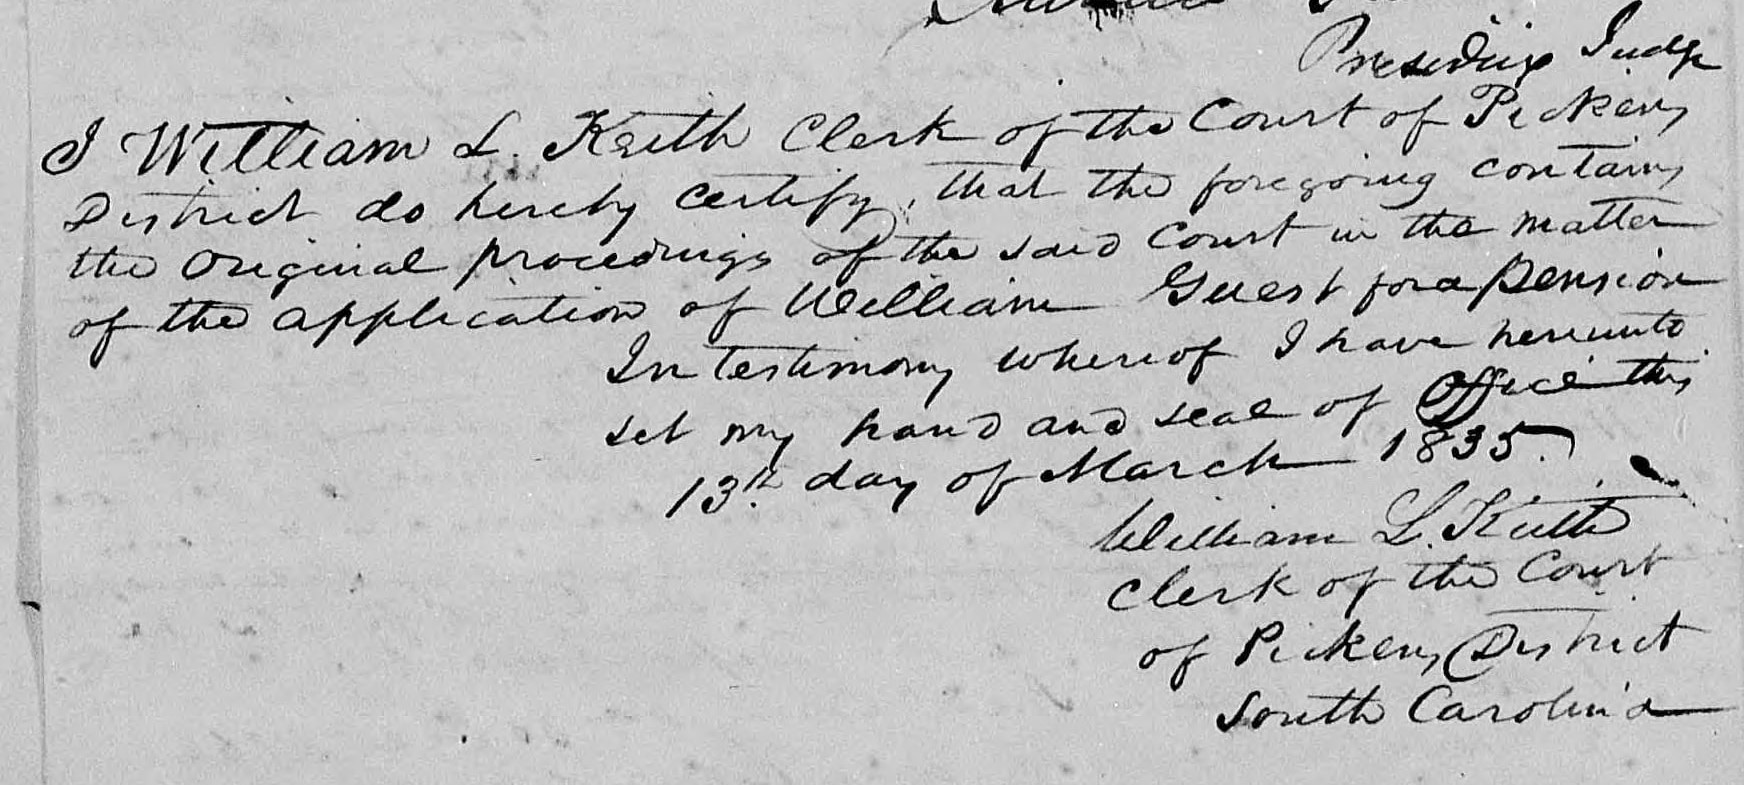 Presiding Judge
I William L. Keith Clerk of the Court of Pickens
District do hereby certify, that the foregoing contains
the Original proceedings of the said Court in the matter
of the application of William Guest for a pension
In testimony whereof I have hereunto
set my hand and seal of Office this
13th day of March 1835.
William L. Keith
Clerk of the Court
of Pickens District
South Carolina